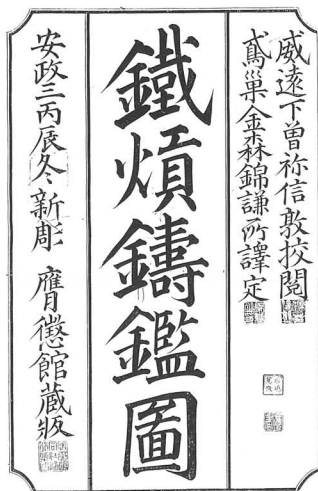 威遠下曽祢信敦挍閲
鳶巢金森錦謙所譯定
鐵熕鑄鑑圖
安政三丙辰冬新彫　膺懲館藏版